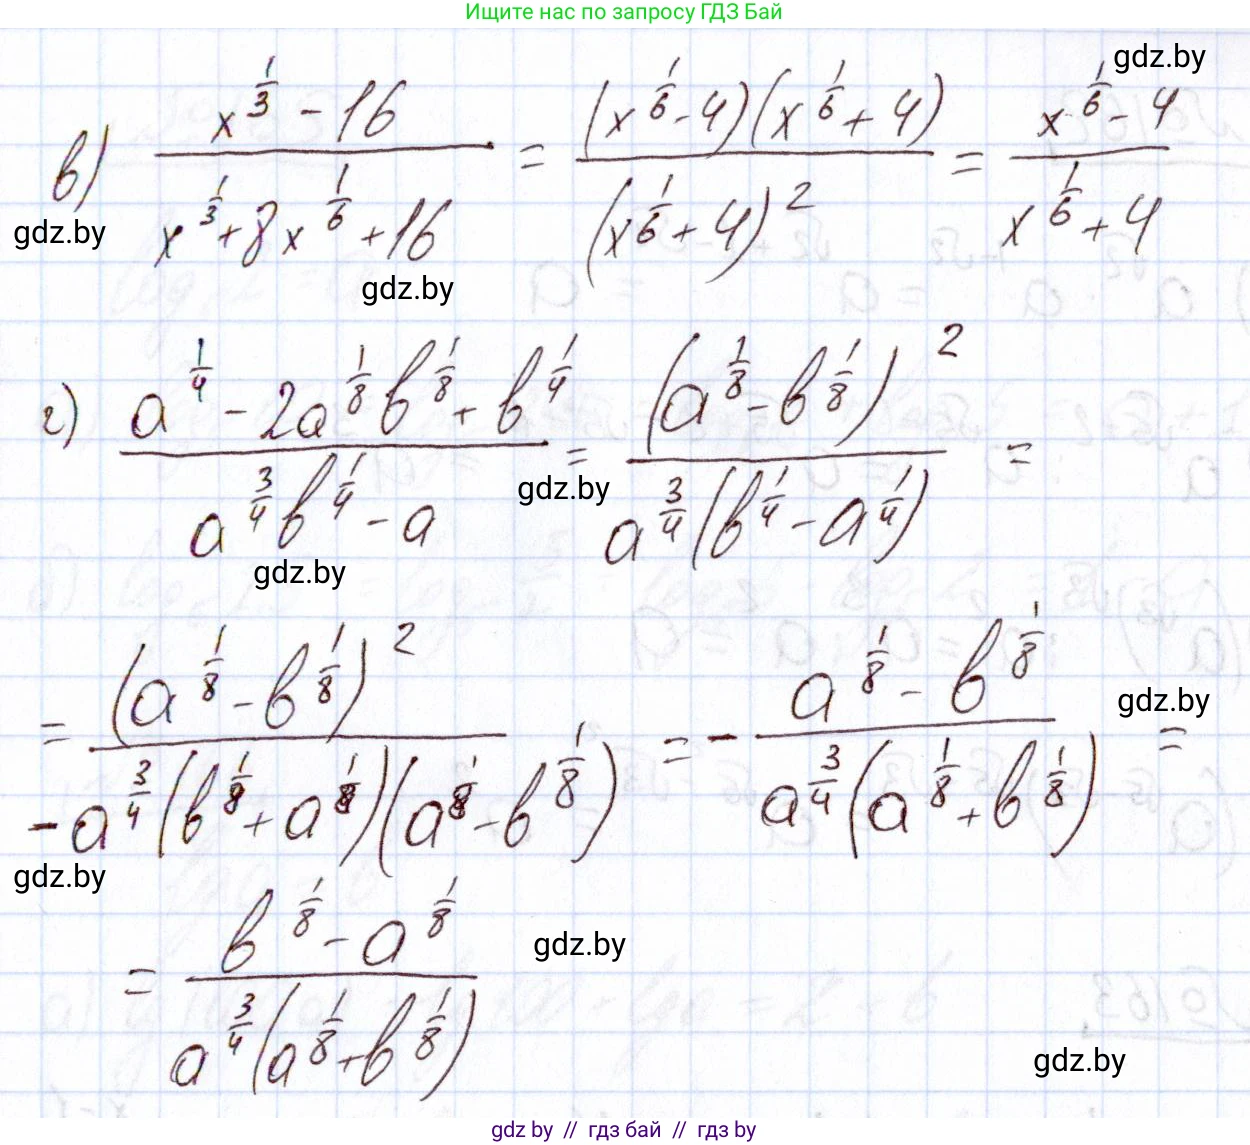 Ищите нас по запросу ГДЗ Бай
gdz.by
в) (x^(1/3) - 16)/(x^(1/3) + 8x^(1/6) + 16) = ((x^(1/6) - 4)(x^(1/6) + 4))/((x^(1/6) + 4)^2) = (x^(1/6) - 4)/(x^(1/6) + 4)
gdz.by
gdz.by
г) (a^(1/4) - 2a^(1/8)в^(1/8) + в^(1/4))/(a^(3/4)в^(1/4) - a) = ((a^(1/8) - в^(1/8))^2)/(a^(3/4)(в^(1/4) - a^(1/4))) =
gdz.by
gdz.by
= ((a^(1/8) - в^(1/8))^2)/(-a^(3/4)(в^(1/8) + a^(1/8))(a^(1/8) - в^(1/8))) = -(a^(1/8) - в^(1/8))/(a^(3/4)(a^(1/8) + в^(1/8))) =
gdz.by
gdz.by
= (в^(1/8) - a^(1/8))/(a^(3/4)(a^(1/8) + в^(1/8)))
gdz.by
gdz.by
gdz by // гдз бай // gdz by